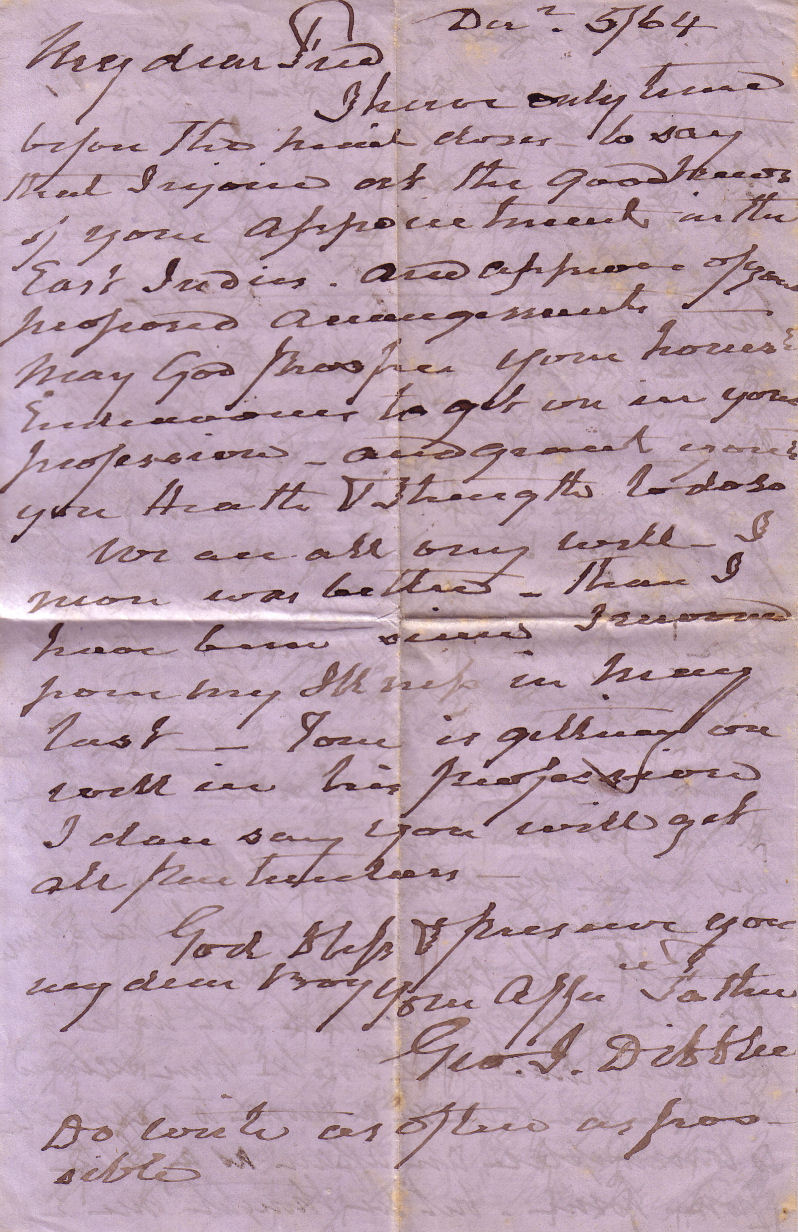 Decr. 5/64
My dear Fred
I have only time
before the mail closes - to say
that I rejoice at the good news
of your appointment in the
East Indies. and approve of your
proposed arrangements —
May God prosper your honest
Endeavours to get on in your
profession - and grant
you Health & Strength to do so
We are all very well - I
never was better - than I
have been since I recovered
from my Illness in May
last — Tom is getting on
well in his profession
I dare say you will get
all particulars —
God bless & preserve you
my dear Boy your Affte Father
Geo. J. Dibblee
Do write as often as pos-
sible